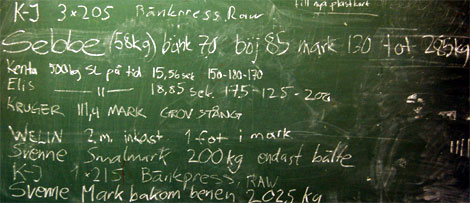 till nya plastkort
K-J 3x205 Bänkpress, Raw
Sebbe (58kg) bänk 70 böj 85 mark 130 tot 285kg
Kenta 500kg SL på tid 15,56 sek 150-180-170
Elis —— 11 —— 18,85 sek. 175-125-200
KRUGER 111,4 MARK GROV STÅNG
WELIN 2.m. inkast 1 fot i mark
Svenne Smalmark 200 kg endast bälte
K-J 1x215 Bänkpress, RAW
Svenne Mark bakom benen 202,5 kg